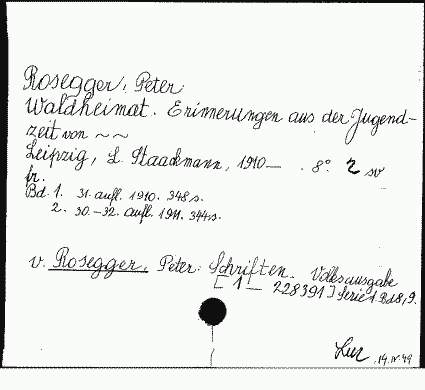 Rosegger, Peter
Waldheimat. Erinnerungen aus der Jugend-
zeit von ~ ~
Leipzig, L. Staackmann, 1910— . 8°. 2 sv
br.
Bd. 1. 31. aufl. 1910. 348 s.
2. 30.–32. aufl. 1911. 344 s.
v. Rosegger, Peter: Schriften. Volksausgabe
[1— 228391] Serie 1 Bd 8, 9.
19.IV.49